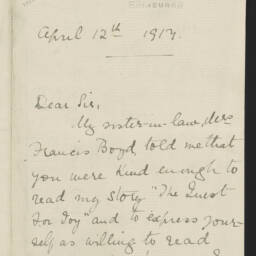 EDINBURGH
April 12th 1917.
Dear Sir,
My sister-in-law, Mrs
Francis Boyd, told me that
you were kind enough to
read my story "The Quest
For Joy" and to express your-
self as willing to read